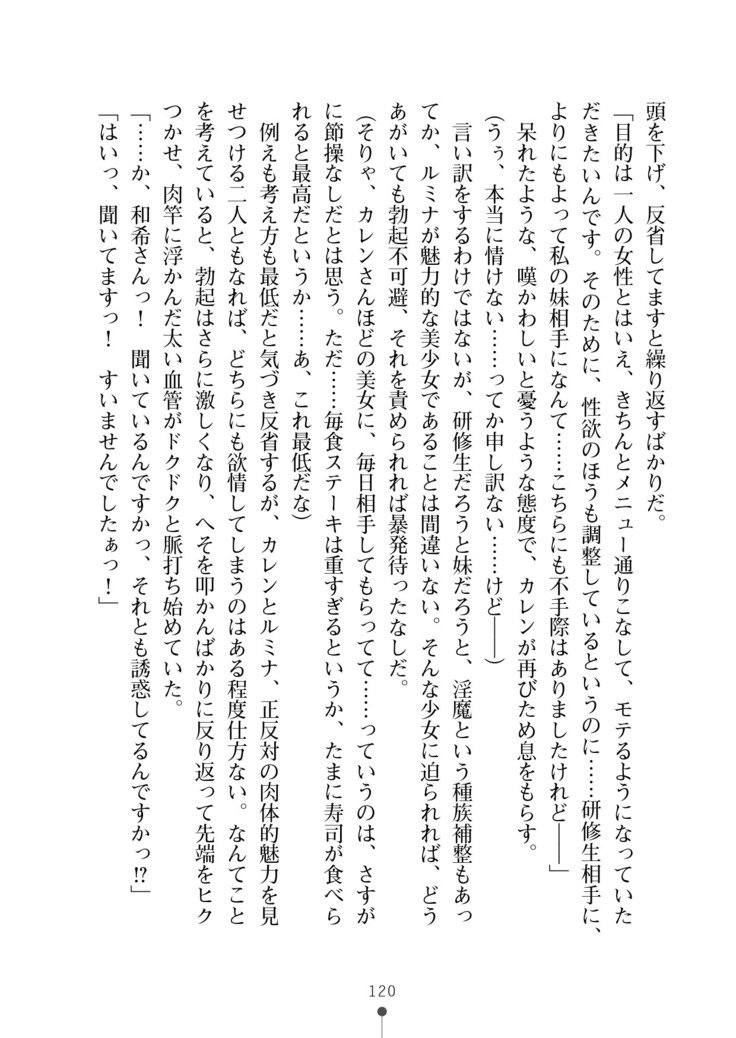 頭を下げ、反省してますと繰り返すばかりだ。
「目的は一人の女性とはいえ、きちんとメニュー通りこなして、モテるようになっていた
だきたいんです。そのために、性欲のほうも調整しているというのに……研修生相手に、
よりにもよって私の妹相手になんて……こちらにも不手際はありましたけれど――」
呆れたような、嘆かわしいと憂うような態度で、カレンが再びため息をもらす。
（うぅ、本当に情けない……ってか申し訳ない……けど――）
言い訳をするわけではないが、研修生だろうと妹だろうと、淫魔という種族補整もあっ
てか、ルミナが魅力的な美少女であることは間違いない。そんな少女に迫られれば、どう
あがいても勃起不可避、それを責められれば暴発待ったなしだ。
（そりゃ、カレンさんほどの美女に、毎日相手してもらってて……っていうのは、さすが
に節操なしだとは思う。ただ……毎食ステーキは重すぎるというか、たまに寿司が食べら
れると最高だというか……あ、これ最低だな）
例えも考え方も最低だと気づき反省するが、カレンとルミナ、正反対の肉体的魅力を見
せつける二人ともなれば、どちらにも欲情してしまうのはある程度仕方ない。なんてこと
を考えていると、勃起はさらに激しくなり、へそを叩かんばかりに反り返って先端をヒク
つかせ、肉竿に浮かんだ太い血管がドクドクと脈打ち始めていた。
「……か、和希さんっ！　聞いているんですかっ、それとも誘惑してるんですかっ!?」
「はいっ、聞いてますっ！　すいませんでしたぁっ！」
120